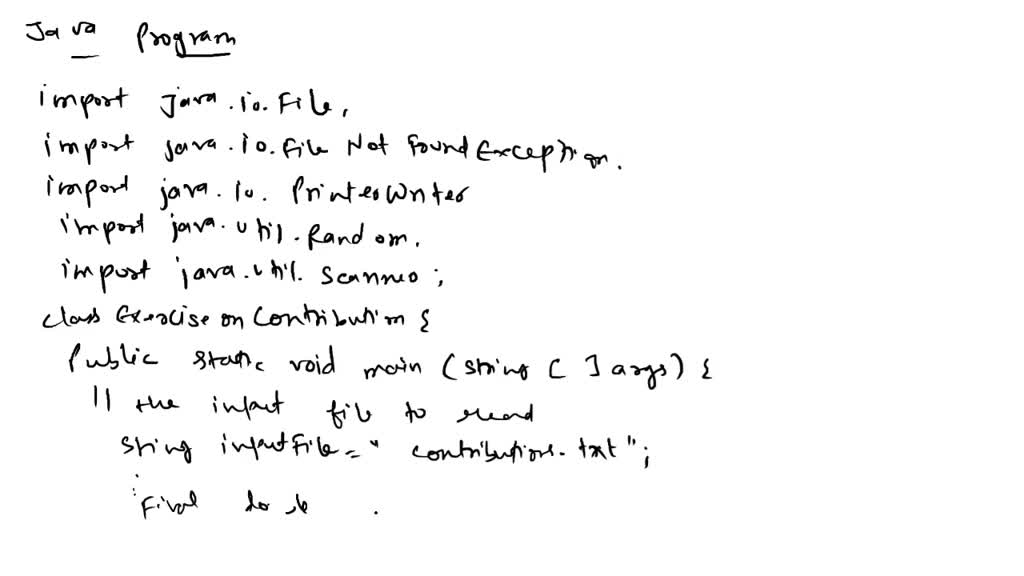 Java Program
import java.io.File,
import java.io.File Not Found Exception.
import java.io. PrinterWriter
import java.util.Random.
import java.util. Scanner;
class Exercise on Contribution {
Public static void main (string [ ] args) {
// the input file to read
string inputFile = " contributions.txt";
Final